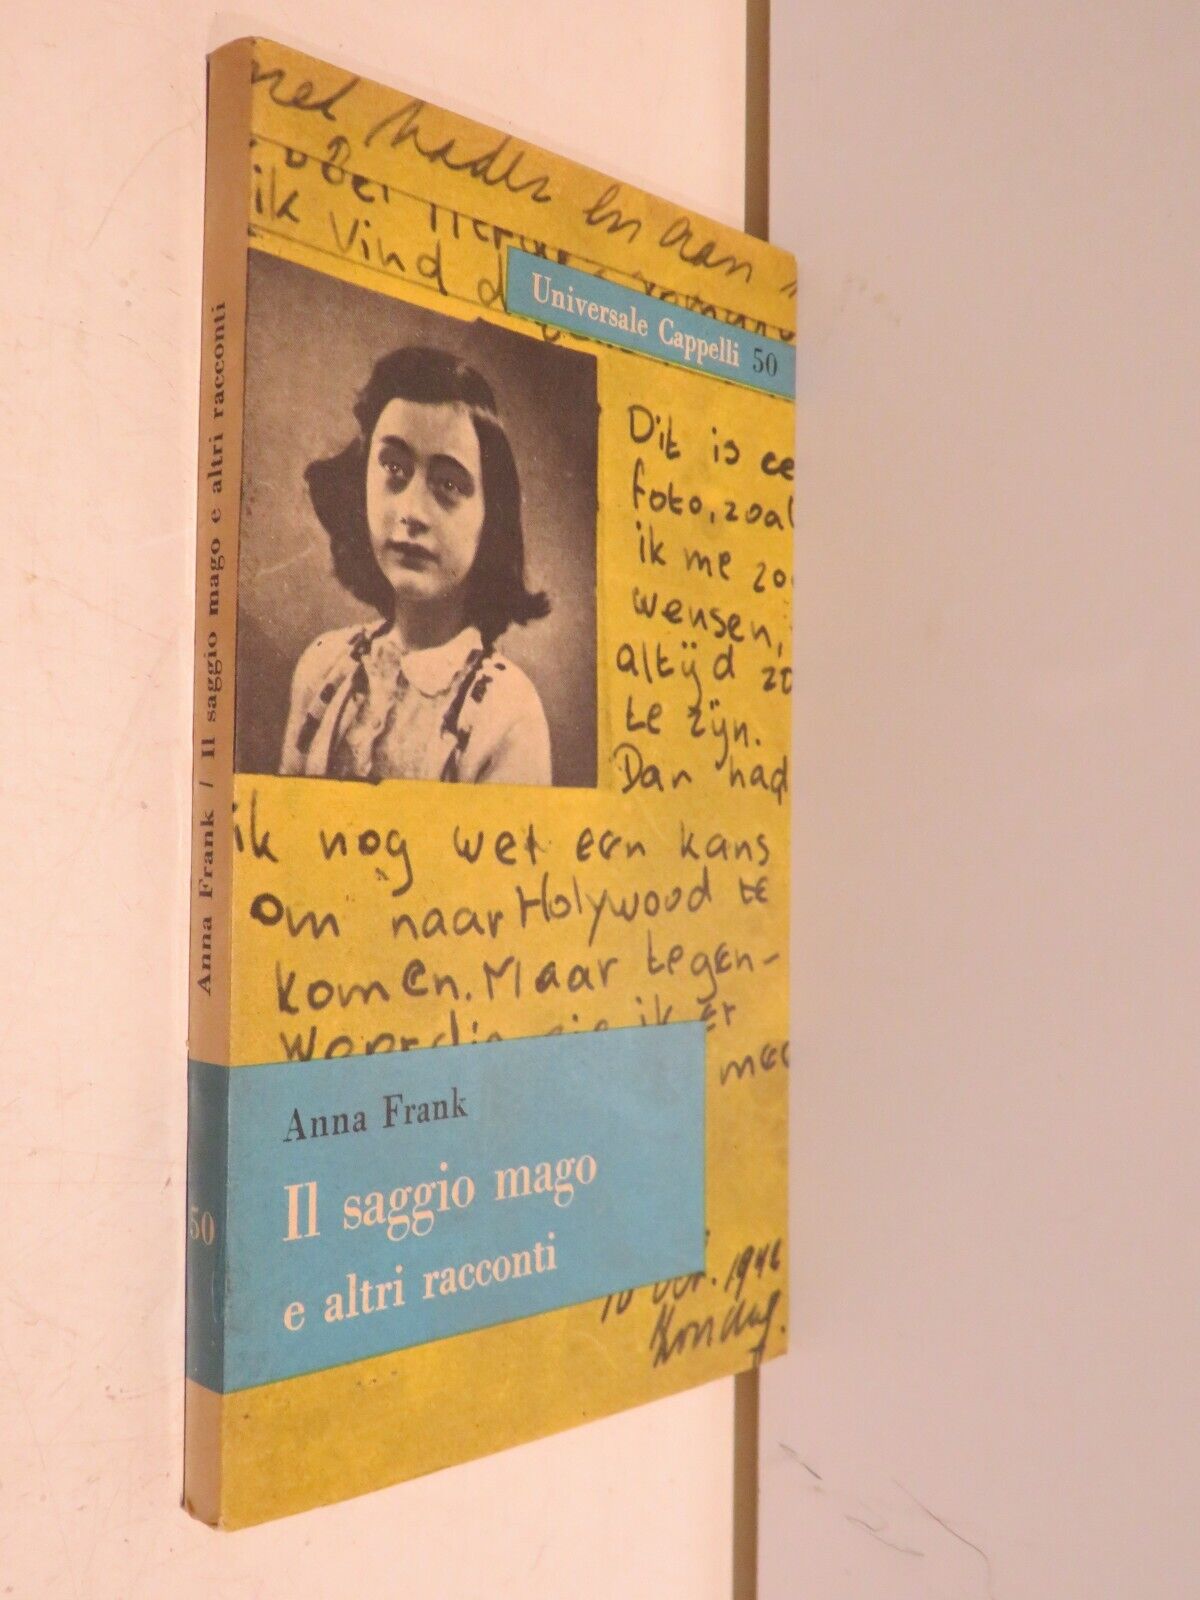 Anna Frank / Il saggio mago e altri racconti
50
en aan
ik vind
Universale Cappelli 50
Dit is
foto,
ik me
wensen,
altijd
te zijn.
Dan had
ik nog wel een kans
om naar Holywood te
komen. Maar tegen-
ik er
Anna Frank
Il saggio mago
e altri racconti